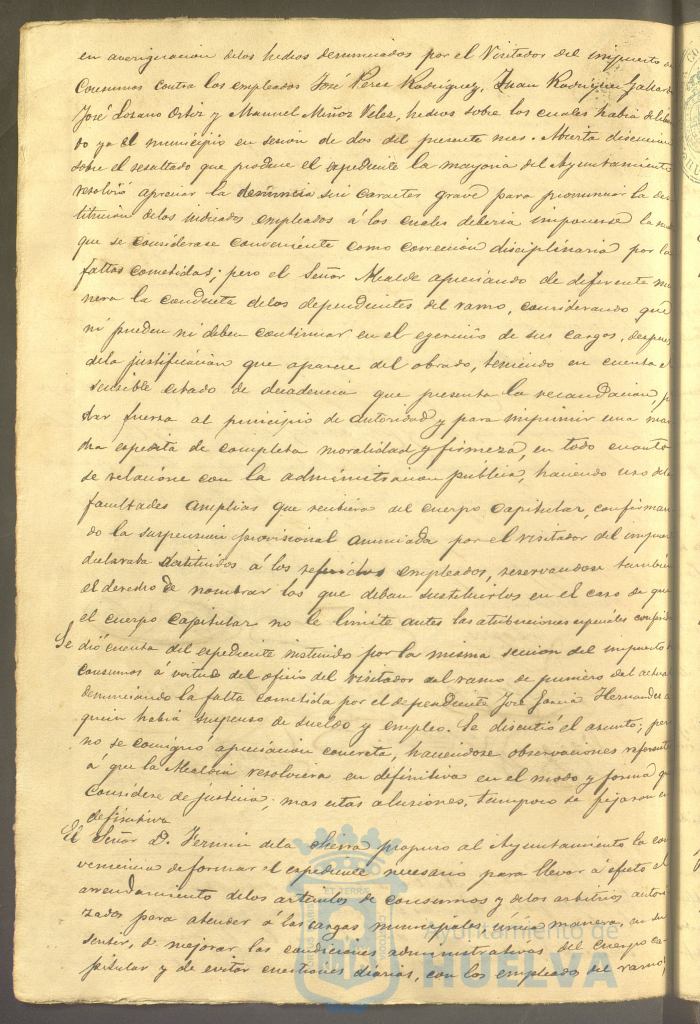 en averiguacion delos hechos denunciados por el Visitador del impuesto de
Consumos contra los empleados José Perez Rodriguez, Juan Rodriguez Gallardo
José Lozano Ortiz y Manuel Muñoz Velez, hechos sobre los cuales habia delibera
do ya el municipio en sesion de dos del presente mes. Abierta discusion
sobre el resultado que produce el expediente la mayoria del Ayuntamiento
resolvió apreciar la denuncia sin caracter grave para pronunciar la des
titucion delos indicados empleados á los cuales deberia imponerse la
que se considerase conveniente como correccion disciplinaria por las
faltas cometidas; pero el Señor Alcalde apreciando de diferente ma
nera la conducta delos dependientes del ramo, considerando que
ni pueden ni deben continuar en el egercicio de sus cargos, despues
dela justificacion que aparece del obrado, teniendo en cuenta el
sensible estado de decadencia que presenta la recaudacion,
dar fuerza al principio de autoridad y para imprimir una mar
cha expedita de completa moralidad y firmeza, en todo cuanto
se relacione con la administracion publica, haciendo uso delas
facultades amplias que recibiera del cuerpo capitular, confirman
do la suspension provisional anunciada por el visitador del impuesto
declaraba destituidos á los referidos empleados, reservandose tambien
el derecho de nombrar los que deban sustituirlos en el caso de que
el cuerpo capitular no le limite antes las atribuciones especiales conferidas
Se dió cuenta del expediente instruido por la misma seccion del impuesto de
consumos á virtud del oficio del visitador del ramo de primero del actual
denunciando la falta cometida por el dependiente José Garcia Hernandez á
quien habia suspenso de sueldo y empleo. Se discutió el asunto; pero
no se consignó apreciacion concreta, haciendose observaciones referentes
á que la Alcaldia resolviera en definitiva en el modo y forma que
considere de justicia; mas estas alusiones, tampoco se fijaron en
definitiva
El Señor D. Fermin dela Sierra propuso al Ayuntamiento la con
veniencia de formar el expediente necesario para llevar á efecto el
arrendamiento delos articulos de consumos y delos arbitrios autori
zados para atender á las cargas municipales, unica manera, en su
sentir, de mejorar las condiciones administrativas del cuerpo ca
pitular y de evitar cuestiones diarias, con los empleados del ramo,
Ayuntamiento de
HUELVA